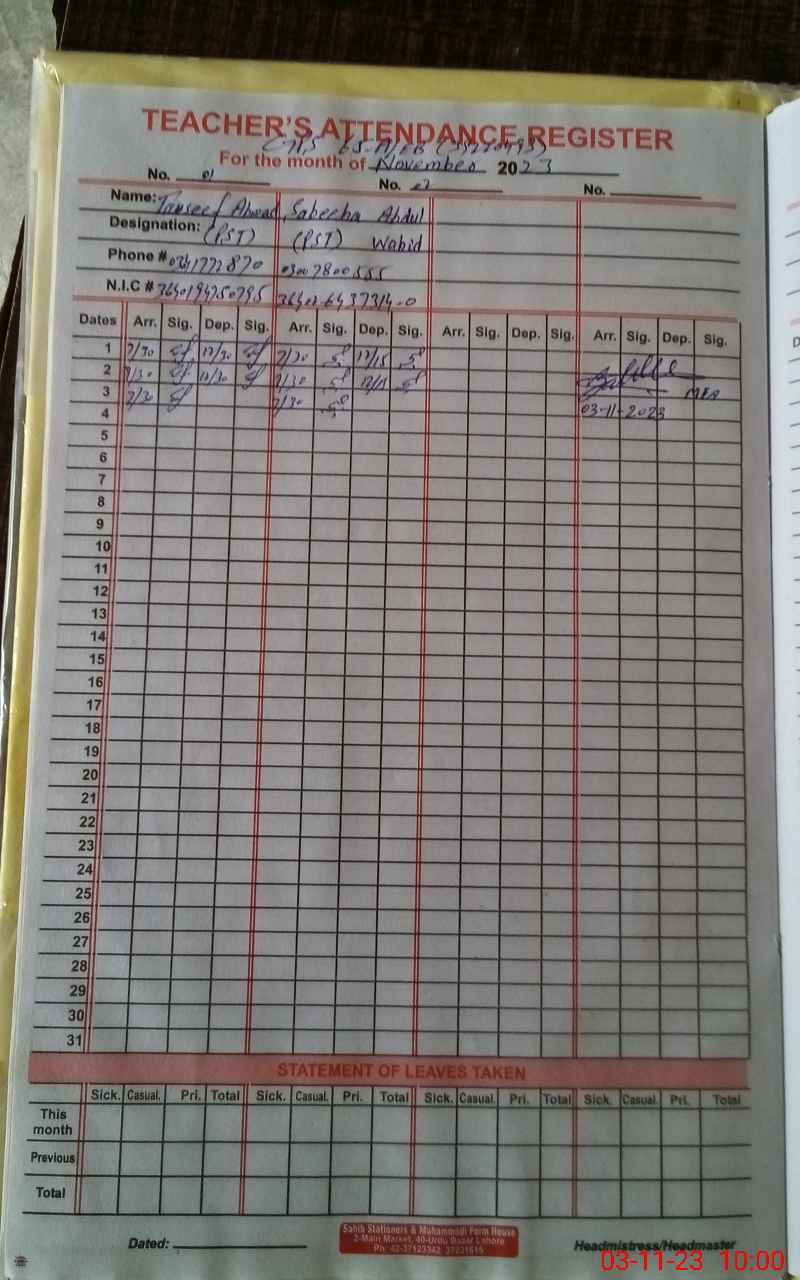 TEACHER'S ATTENDANCE REGISTER
For the month of November 2023
No. 01 No. 02 No.
Name: Tauseef Ahmad Sabeeha Abdul
Designation: (PST) (PST) Wahid
Phone # 03007800555
N.I.C #
Dates Arr. Sig. Dep. Sig. Arr. Sig. Dep. Sig. Arr. Sig. Dep. Sig. Arr. Sig. Dep. Sig.
1 7/30 12/30 7/30 12/15
2 7/30 12/30 7/30
3 7/30 7/30 MEA
4 03-11-2023
5
6
7
8
9
10
11
12
13
14
15
16
17
18
19
20
21
22
23
24
25
26
27
28
29
30
31
STATEMENT OF LEAVES TAKEN
Sick. Casual. Pri. Total Sick. Casual. Pri. Total Sick. Casual. Pri. Total Sick. Casual. Pri. Total
This
month
Previous
Total
Dated:
Sahih Stationers & Muhammadi Form House
2-Main Market, 40-Urdu Bazar Lahore
Ph: 42-37123342 37231615
Headmistress/Headmaster
03-11-23 10:00